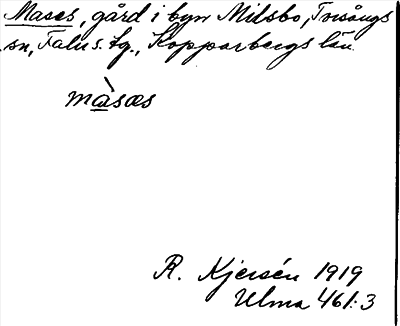 Mases, gård i byn Milsbo, Torsångs
sn, Falu s. tg., Kopparbergs län.
màsæs
R. Kjersén 1919
Ulma 461:3